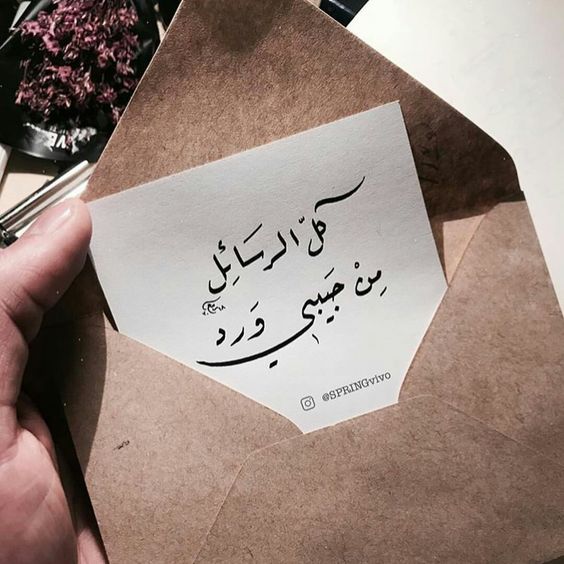 كلّ الرسَائِل
مِنْ حَبيبي وَرد
@SPRINGvivo